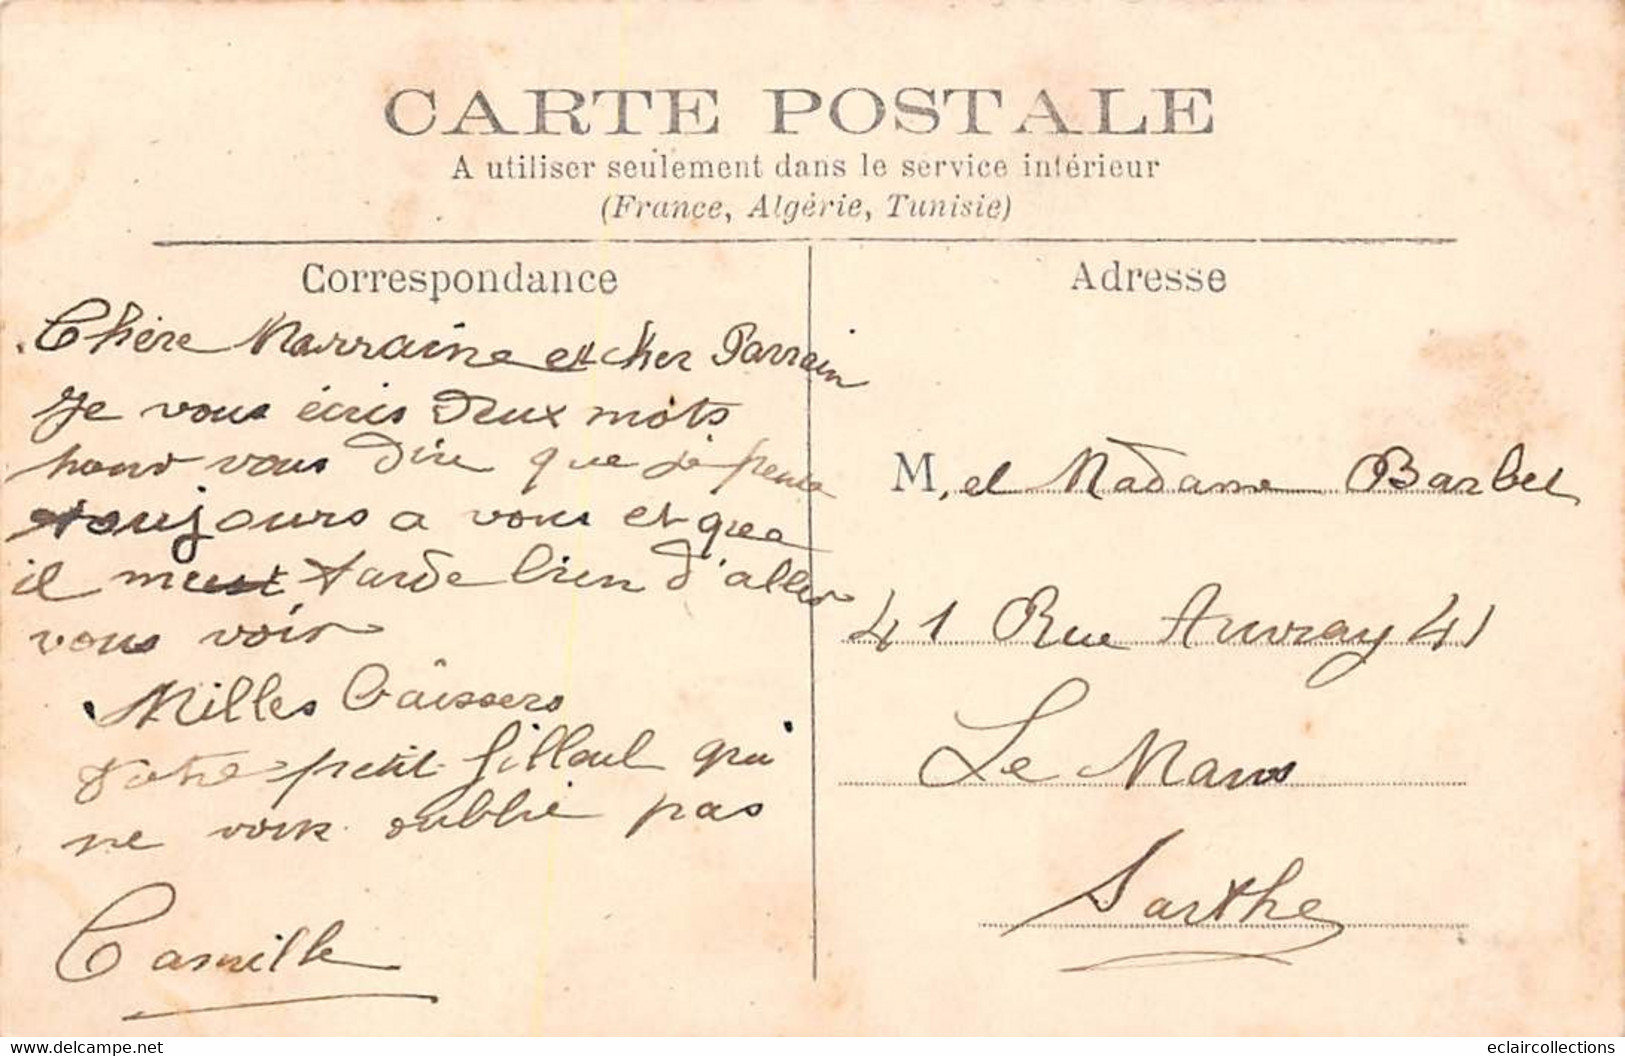 CARTE POSTALE
A utiliser seulement dans le service intérieur
(France, Algérie, Tunisie)
Correspondance
Chère Marraine et cher Parrain
Je vous écris Deux mots
pour vous dire que je pense
toujours a vous et que
il me tarde bien d'aller
vous voir
Milles Baissers
Votre petit filleul qui
ne vous oublie pas
Camille
Adresse
M. et Madame Barbet
41 Rue Auvray 41
Le Mans
Sarthe
www.delcampe.net
eclaircollections